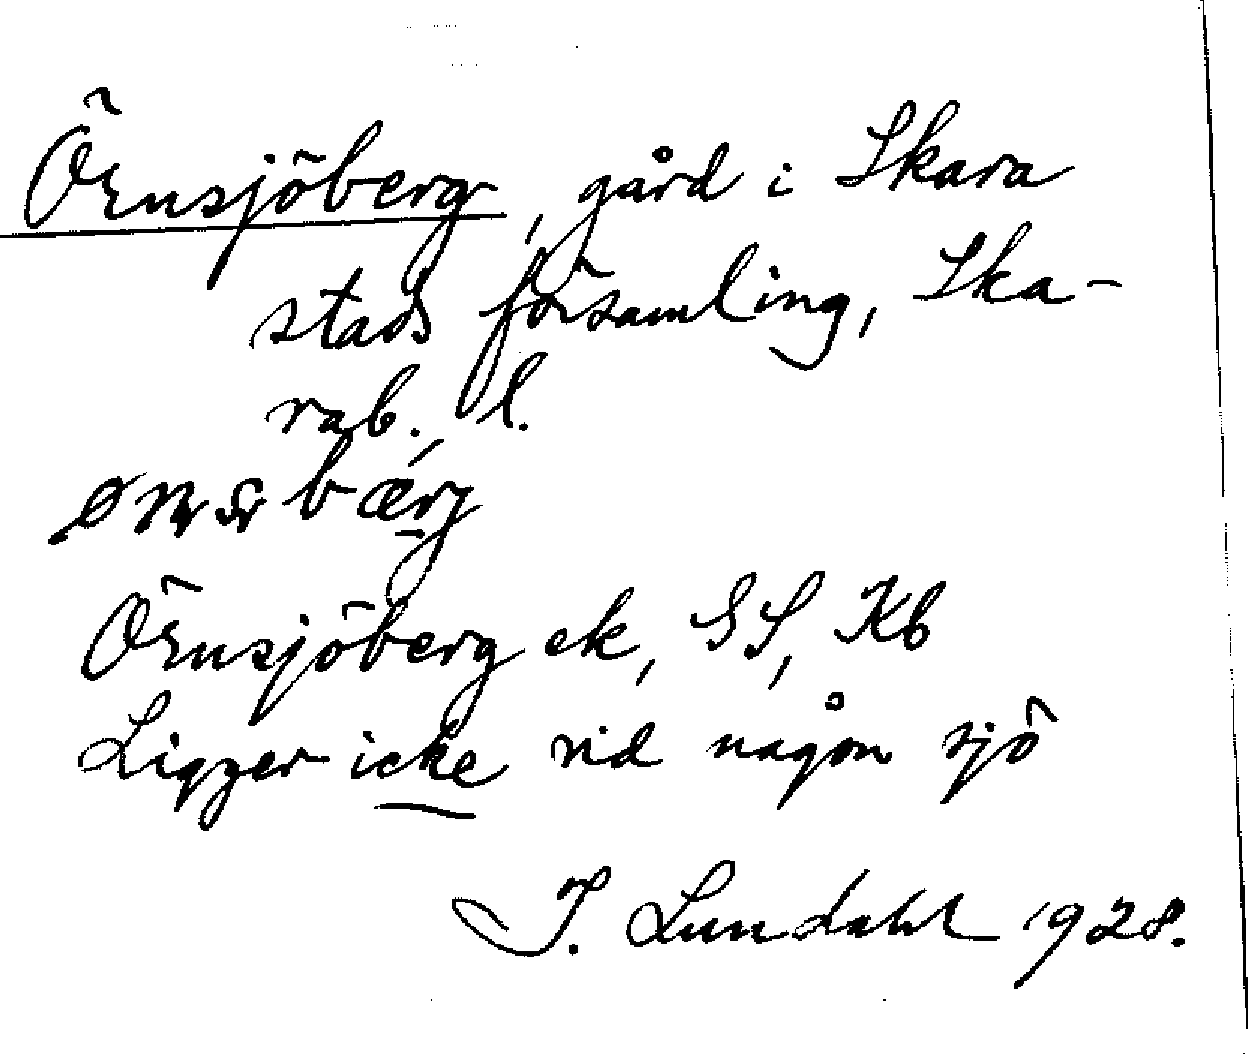 Örnsjöberg, gård i Skara
stads församling, Ska-
rab. l.
bærj
Örnsjöberg ek, GS, Kb
Ligger icke vid någon sjö
I. Lundahl 1928.